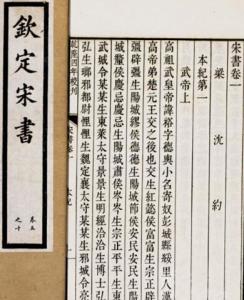 欽定宋書
卷五
之十
乾隆四年校刊
宋書卷一
宋書卷一
梁 沈 約
本紀第一
武帝上
高祖武皇帝諱裕字德輿小名寄奴彭城縣綏里人漢
高帝弟楚元王交之後也交生紅懿侯富富生宗正辟
彊辟彊生陽城繆侯德德生陽城節侯安民安民生陽
城釐侯慶忌慶忌生陽城肅侯岑岑生宗正平平生東
武城令某某生東萊太守景景生明經洽洽生博士弘
弘生瑯邪都尉悝悝生魏定襄太守某某生邪城令亮